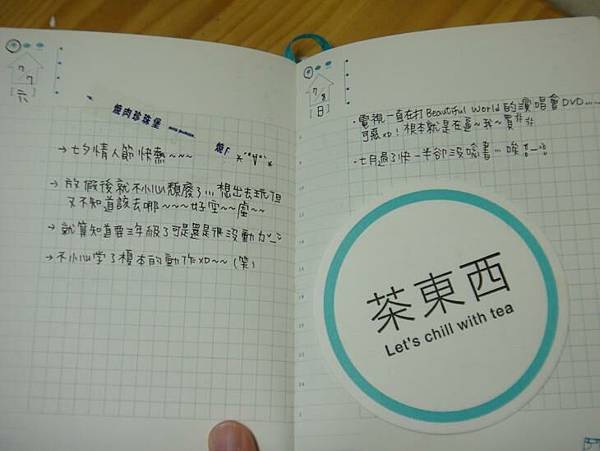 7/7
[六]
燒肉珍珠堡
→七夕情人節快熱~~~
→放假後就不小心頹廢了...想出去玩但
又不知道該去哪~~~~好空~~虛~~
→就算知道要三年級了可是還是很沒動力
→不小心學了榎本的動作XD~~(笑)
7/8
[日]
·電視一直在打Beautiful World的演唱會DVD....
可惡XD!根本就是在逼~我~買##
·七月過了快一半卻沒唸書...唉
茶東西
Let's chill with tea